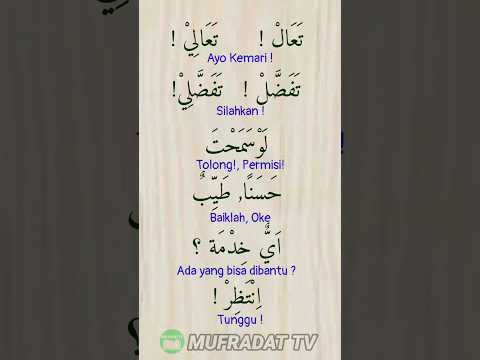 تَعَالْ ! تَعَالِيْ !
Ayo Kemari !
تَفَضَّلْ ! تَفَضَّلِيْ !
Silahkan !
لَوْسَمَحْتَ
Tolong!, Permisi!
حَسَنًا, طَيِّبٌ
Baiklah, Oke
اَيٌّ خِدْمَة ؟
Ada yang bisa dibantu ?
اِنْتَظِرْ !
Tunggu !
MUFRADAT TV